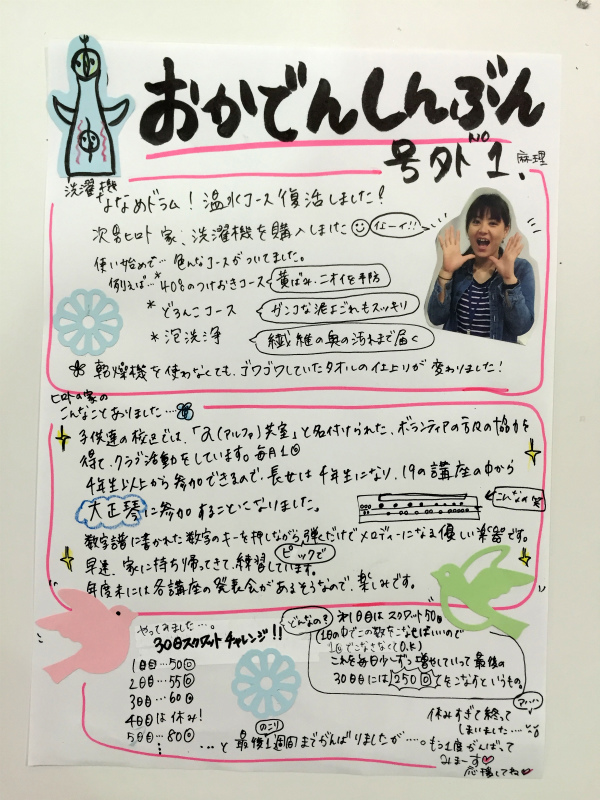 おかでんしんぶん
号外 NO 1.
麻理
洗濯機
ななめドラム！温水コース復活しました！
次男ヒロト家、洗濯機を購入しました
イェーイ!!
使い始めて…色んなコースがついてました。
例えば…*40°のつけおきコース 黄ばみ.ニオイを予防
*どろんこコース ガンコな泥よごれもスッキリ
*泡洗浄 繊維の奥の汚れまで届く
乾燥機を使わなくても、ゴワゴワしていたタオルの仕上りが変わりました！
ヒロトの家の
こんなことありました…
子供達の校区では、「α(アルファ)教室」と名付けられた、ボランティアの方々の協力を
得て、クラブ活動をしています。毎月1回
4年生以上から参加できるので、長女は4年生になり、19の講座の中から
大正琴に参加することになりました。
こんなの笑
数字譜に書かれた数字のキーを押しながら弾くだけでメロディーになる優しい楽器です。
ピックで
早速、家に持ち帰ってきて、練習しています。
年度末には各講座の発表会があるそうなので、楽しみです。
やってみました…。
30日スクワットチャレンジ!!
どんなの？
1日目…50回
2日目…55回
3日目…60回
4日目は休み！
5日目…80回
※1日目はスクワット50回
(1日の中でこの数をこなせばいいので
1回でこなさなくてO.K)
これを毎日少しずつ増やしていって最後の
30日目には250回をこなすというもの。
…と最後1週間までがんばりましたが……。
のこり
アハハ…
休みすぎて終って
しまいました…
もう1度がんばって
みまーす♡
応援してね♡